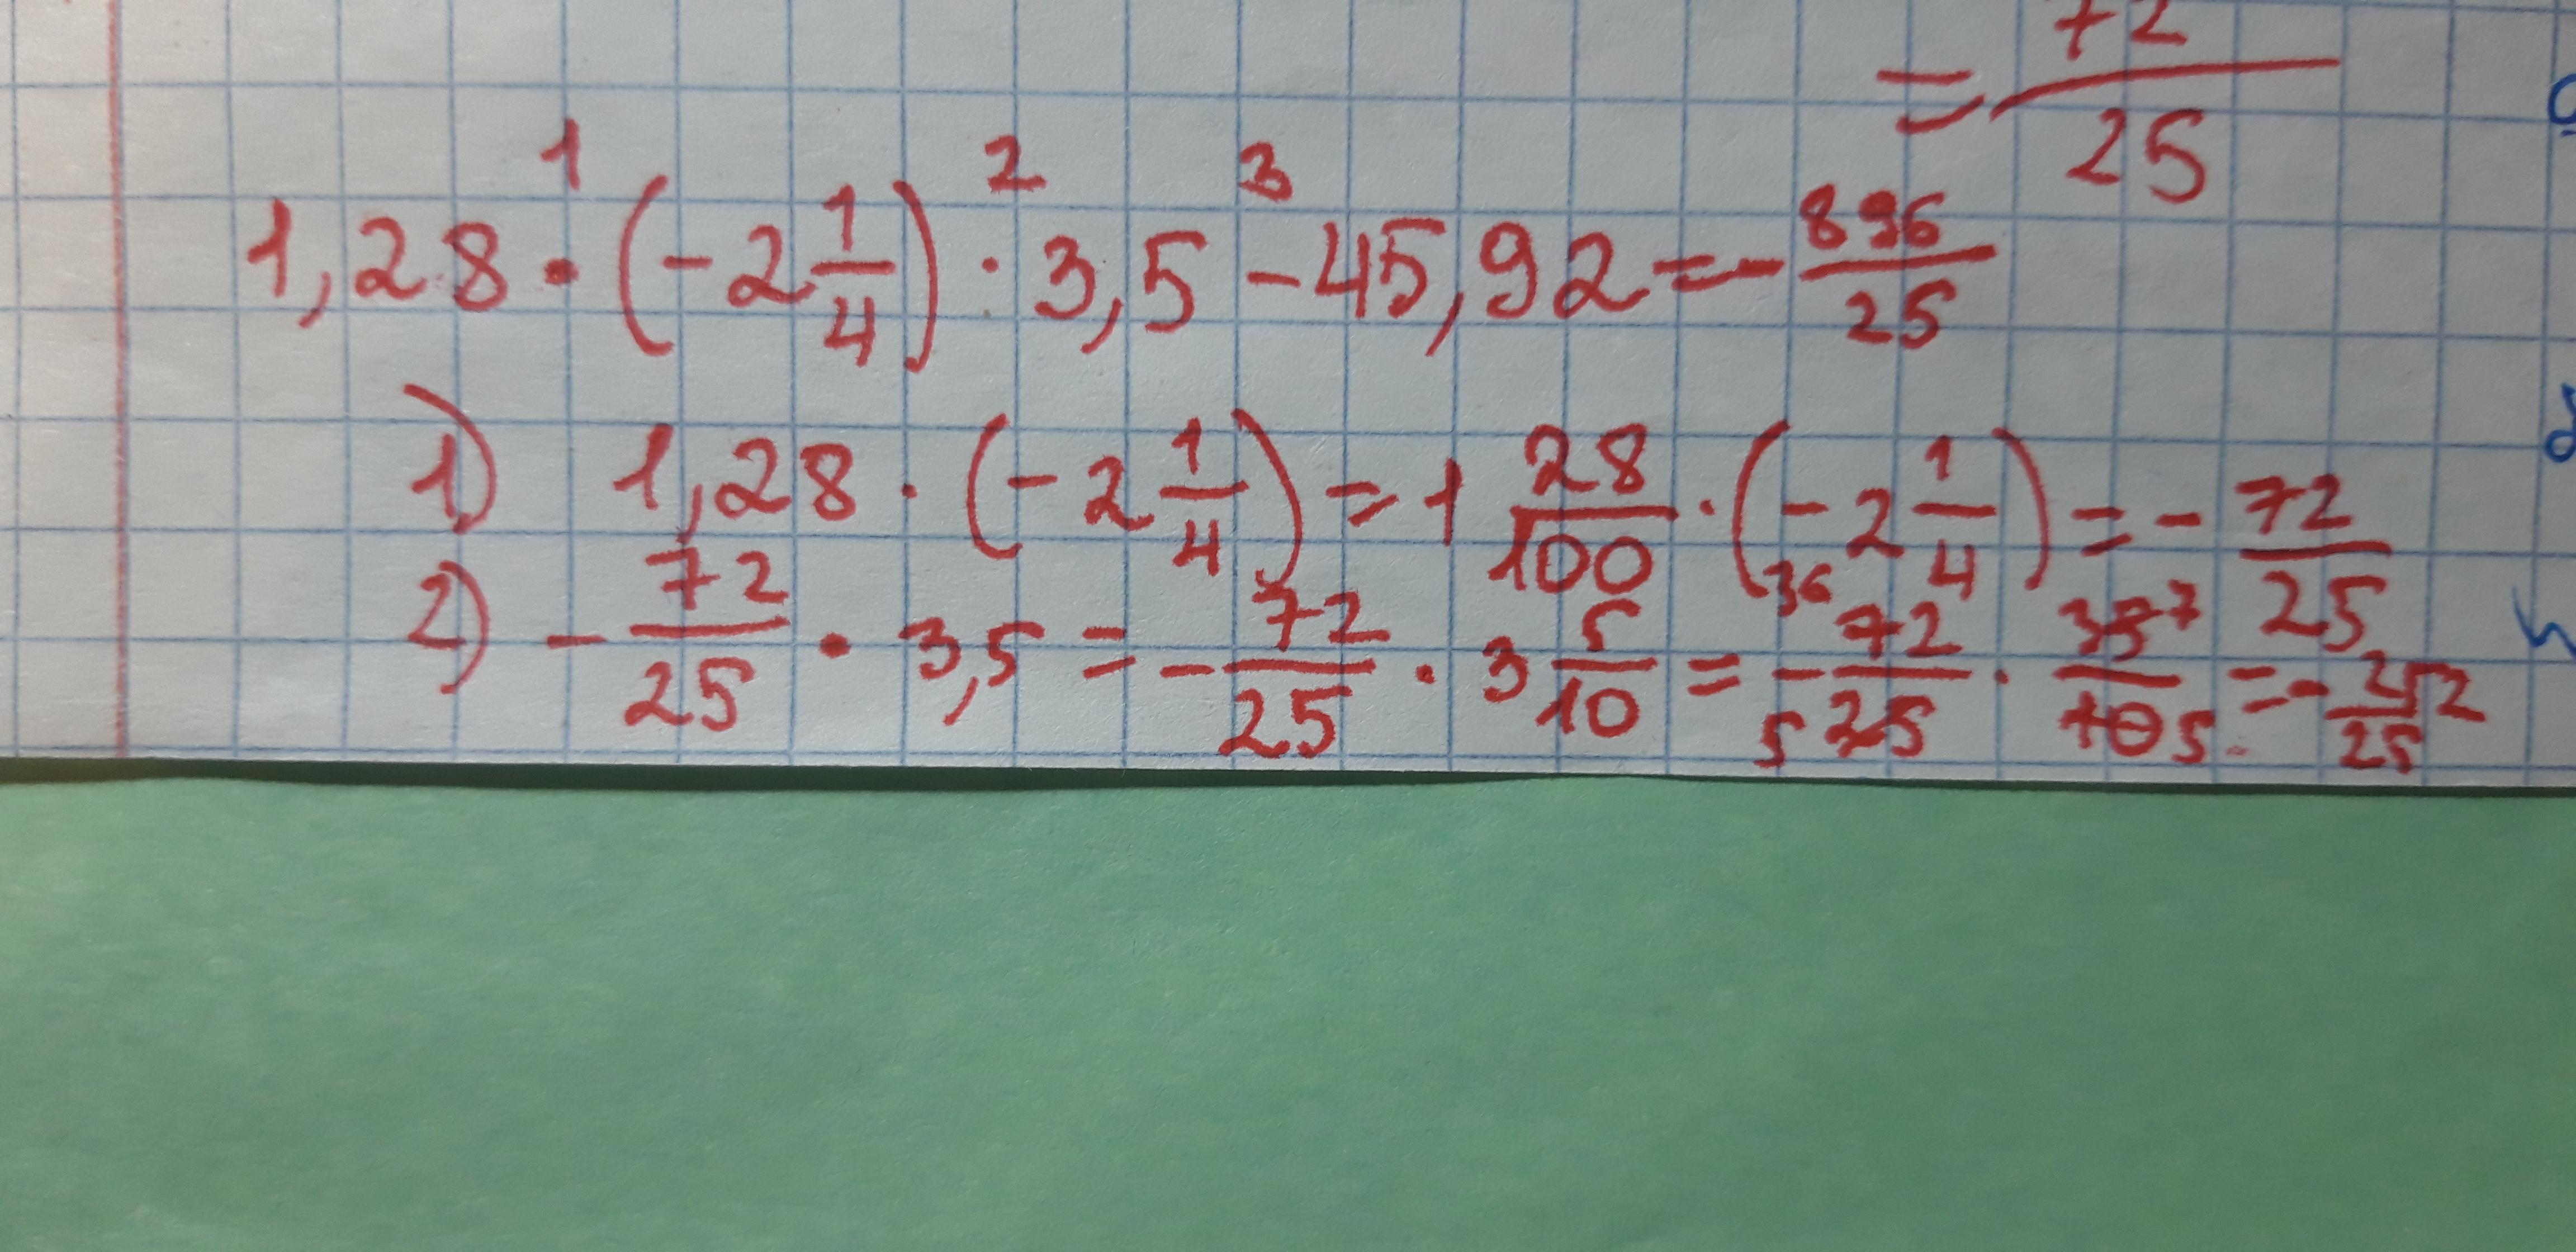 = 72/25
1,28 · (-2 1/4) · 3,5 - 45,92 = - 896/25
1 2 3
1) 1,28 · (-2 1/4) = 1 28/100 · (-2 1/4) = - 72/25
2) - 72/25 · 3,5 = - 72/25 · 3 5/10 = - 36 72/5 25 · 35 7/10 5 = - 252/25